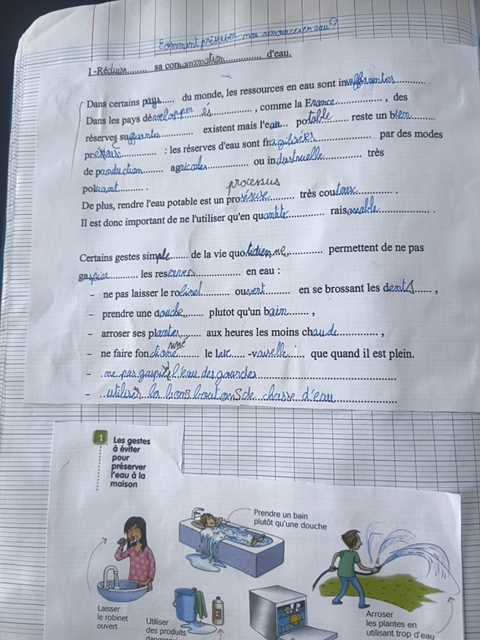 Comment préserver nos ressources en eau ?
I -Réduire........ sa consommation.............. d'eau.
Dans certains pays..... du monde, les ressources en eau sont insuffisantes
Dans les pays développés ............., comme la France..............., des
réserves suffisantes existent mais l'eau... potable ........ reste un bien
précieux ........... : les réserves d'eau sont fragilisées ............. par des modes
de production........ agricoles ........ ou industrielle......... très
polluant.......... .
processus
De plus, rendre l'eau potable est un très couteux.......... .
Il est donc important de ne l'utiliser qu'en quantité ........... raisonable............. .
Certains gestes simple...... de la vie quotidienne............ permettent de ne pas
gaspiller.......... les réserves............... en eau :
- ne pas laisser le robinet........ ouvert........... en se brossant les dents......,
- prendre une douche......... plutot qu'un bain.........,
- arroser ses plantes........ aux heures les moins chaude............,
- ne faire fonctionné ............ le lave......-vaiselle...... que quand il est plein.
- ne pas gaspillé l'eau des
- utiliser les bons boutons de chasse d'eau
1 Les gestes
à éviter
pour
préserver
l'eau à la
maison
Prendre un bain
plutôt qu'une douche
Laisser
le robinet
ouvert
Utiliser
des produits
Arroser
les plantes en
utilisant trop d'eau